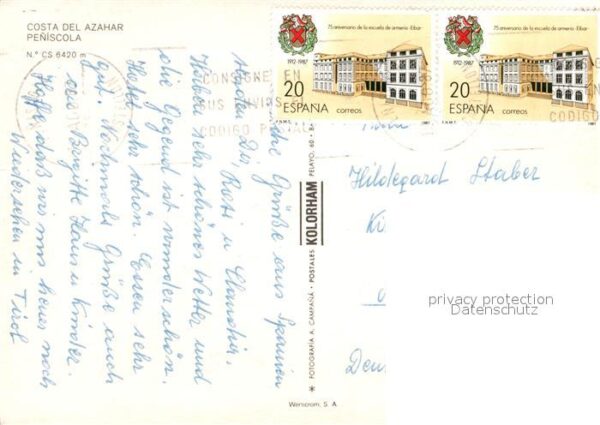 COSTA DEL AZAHAR
PEÑISCOLA
N.º CS 6420 m
75 aniversario de la escuela de armería -Eibar
1912-1987
20
ESPAÑA correos
75 aniversario de la escuela de armería -Eibar
1912-1987
20
ESPAÑA correos
CONSIGNE EN
SUS ENVIOS
CODIGO POSTAL
CODIGO
Grüße aus Spanien
Dir, Rosi u. Claudia.
Haben sehr schönes Wetter und
die Gegend ist wunderschön.
Hotel sehr schön. Essen sehr
gut. Nochmals Grüße auch
aus Brigitte Hans u. Kinder.
Hoffe daß wir uns heuer noch
wiedersehen in Tirol
FOTOGRAFIA A. CAMPAÑÁ - POSTALES KOLORHAM PELAYO, 60 - BA
Hildegard Staber
Deu
privacy protection
Datenschutz
Werncrom, S. A.